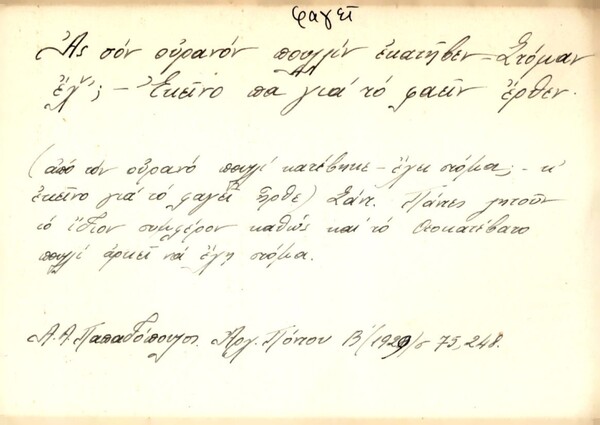 φαγεῖ
Ἀς σόν οὐρανόν πουλλίν ἐκατῆβεν – Στόμαν
ἔχ'; – Ἐκεῖνο πα γιά τό φαεῖν ἔρθεν.
(ἀπό τόν οὐρανό πουλί κατέβηκε – ἔχει στόμα; – κ'
ἐκεῖνο γιά τό φαγεῖ ἦρθε) Σάντ. Πάντες ζητοῦν
τό ἴδιον συμφέρον καθώς καί τό θεοκατέβατο
πουλί ἀρκεῖ νά ἔχῃ στόμα.
Α. Α. Παπαδόπουλος. Ἀρχ. Πόντου Β' (1929) σ 75, 248.